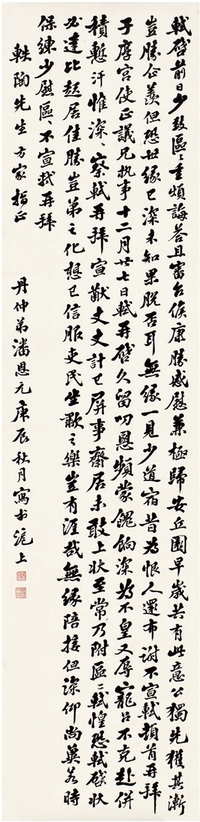 軾啓前日少致區〻重煩誨答且審台候康勝感慰兼極歸安丘園早歲共有此意公獨先獲其漸
豈勝企羨但恐世緣已深未知果脫否耳無緣一見少道宿昔為恨人還布謝不宣軾頓首再拜
子厚宮使正議兄執事十二月廿七日軾再啓久留叨恩頻蒙餽餉深為不皇又辱寵召不克赴併
積慙汗惟深〻察軾再拜宣猷丈丈計已屏事齋居未敢上狀至常乃附區〻軾惶恐軾啓狀
必達比起居佳勝豈弟之化想已信服吏民坐歗之樂豈有涯哉無緣陪接但深仰尚冀若時
保練少慰區〻不宣軾再拜
軼陶先生方家指正
丹仲弟潘恩元庚辰秋月寫於滬上